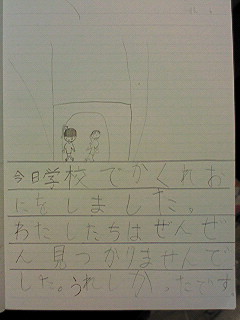 今日学校でかくれお
になしました。
わたしたちはぜんせ
ん見つかりませんで
した。うれしかったです